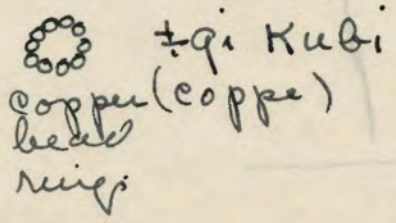 ±qi Kubi
copper (coppe)
bead
ring.